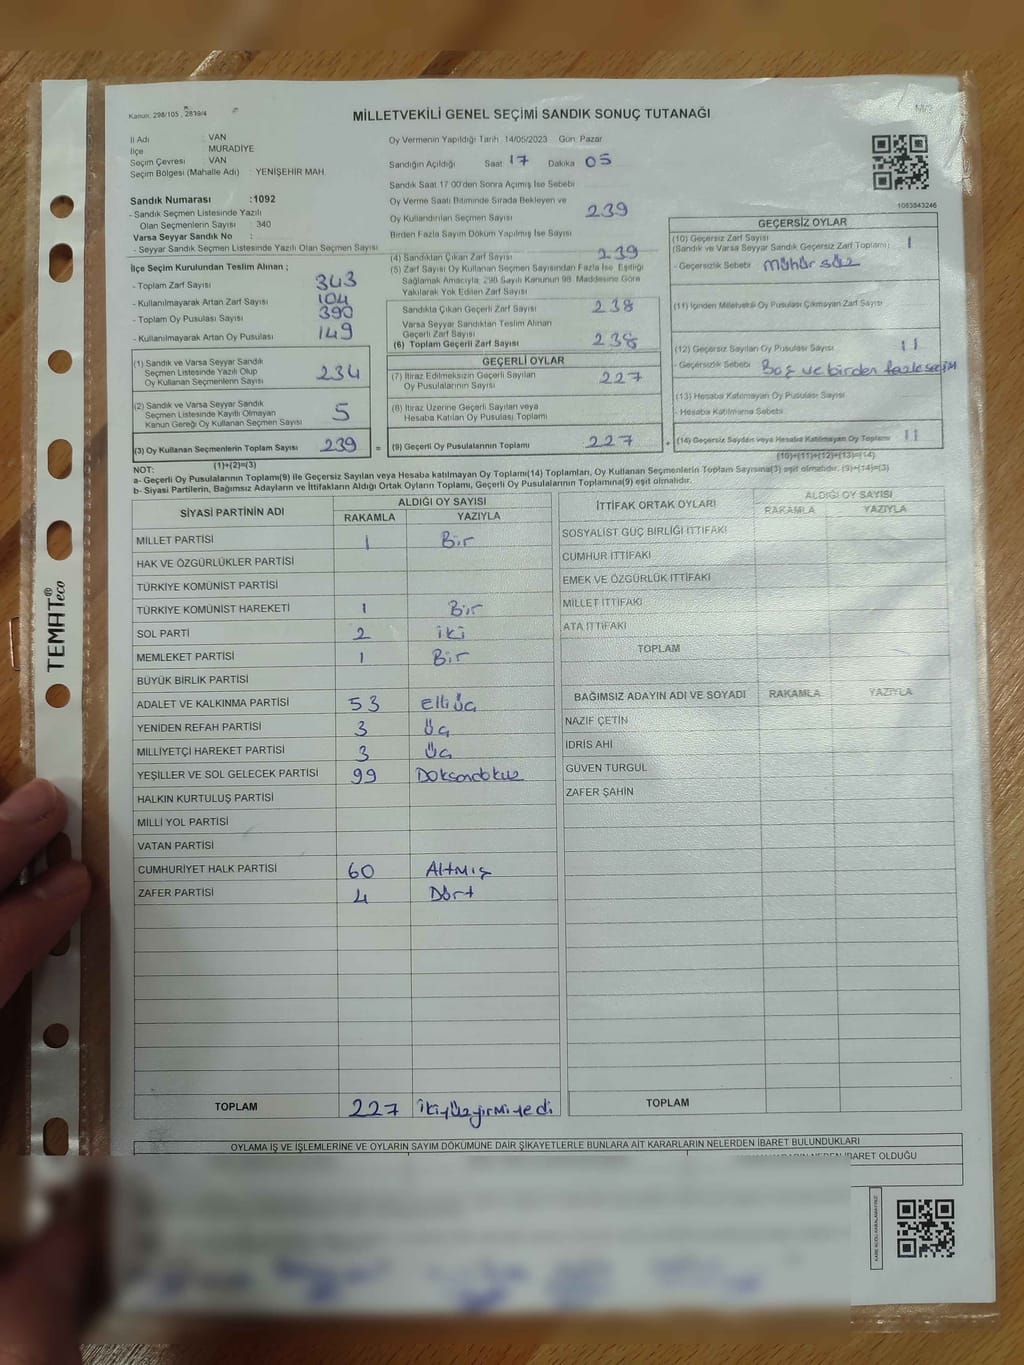 Kanun, 298/105 , 2839/4
MİLLETVEKİLİ GENEL SEÇİMİ SANDIK SONUÇ TUTANAĞI
İl Adı : VAN
İlçe MURADİYE
Seçim Çevresi : VAN
Seçim Bölgesi (Mahalle Adı) : YENİŞEHİR MAH.
Oy Vermenin Yapıldığı Tarih 14/05/2023 Gün Pazar
Sandığın Açıldığı Saat 17 Dakika 05
Sandık Saat 17:00'den Sonra Açımış İse Sebebi
Oy Verme Saati Bitiminde Sırada Bekleyen ve
Oy Kullandırılan Seçmen Sayısı 239
Birden Fazla Sayım Döküm Yapılmış İse Sayısı
1083843246
Sandık Numarası :1092
- Sandık Seçmen Listesinde Yazılı
Olan Seçmenlerin Sayısı 340
Varsa Seyyar Sandık No :
- Seyyar Sandık Seçmen Listesinde Yazılı Olan Seçmen Sayısı
İlçe Seçim Kurulundan Teslim Alınan ;
- Toplam Zarf Sayısı 343
- Kullanılmayarak Artan Zarf Sayısı 104
- Toplam Oy Pusulası Sayısı 390
- Kullanılmayarak Artan Oy Pusulası 149
(1) Sandık ve Varsa Seyyar Sandık
Seçmen Listesinde Yazılı Olup
Oy Kullanan Seçmenlerin Sayısı 234
(2) Sandık ve Varsa Seyyar Sandık
Seçmen Listesinde Kayıtlı Olmayan
Kanun Gereği Oy Kullanan Seçmen Sayısı 5
(3) Oy Kullanan Seçmenlerin Toplam Sayısı 239 =
(1)+(2)=(3)
(4) Sandıktan Çıkan Zarf Sayısı 239
(5) Zarf Sayısı Oy Kullanan Seçmen Sayısından Fazla İse Eşitliği
Sağlamak Amacıyla, 298 Sayılı Kanunun 98. Maddesine Göre
Yakılarak Yok Edilen Zarf Sayısı
Sandıkta Çıkan Geçerli Zarf Sayısı 238
Varsa Seyyar Sandıktan Teslim Alınan
Geçerli Zarf Sayısı
(6) Toplam Geçerli Zarf Sayısı 238
GEÇERLİ OYLAR
(7) İtiraz Edilmeksizin Geçerli Sayılan
Oy Pusulalarının Sayısı 227
(8) İtiraz Üzerine Geçerli Sayılan veya
Hesaba Katılan Oy Pusulası Toplamı
(9) Geçerli Oy Pusulalarının Toplamı 227 +
GEÇERSİZ OYLAR
(10) Geçersiz Zarf Sayısı
(Sandık ve Varsa Seyyar Sandık Geçersiz Zarf Toplamı) 1
- Geçersizlik Sebebi mühür süz
(11) İçinden Milletvekili Oy Pusulası Çıkmayan Zarf Sayısı
(12) Geçersiz Sayılan Oy Pusulası Sayısı 11
- Geçersizlik Sebebi Boş ve birden fazla seçim
(13) Hesaba Katılmayan Oy Pusulası Sayısı
- Hesaba Katılmama Sebebi
(14) Geçersiz Sayılan veya Hesaba Katılmayan Oy Toplamı 11
(10)+(11)+(12)+(13)=(14)
NOT:
a- Geçerli Oy Pusulalarının Toplamı(9) ile Geçersiz Sayılan veya Hesaba katılmayan Oy Toplamı(14) Toplamları, Oy Kullanan Seçmenlerin Toplam Sayısına(3) eşit olmalıdır. (9)+(14)=(3)
b- Siyasi Partilerin, Bağımsız Adayların ve İttifakların Aldığı Ortak Oyların Toplamı, Geçerli Oy Pusulalarının Toplamına(9) eşit olmalıdır.
SİYASİ PARTİNİN ADI ALDIĞI OY SAYISI
RAKAMLA YAZIYLA
MİLLET PARTİSİ 1 Bir
HAK VE ÖZGÜRLÜKLER PARTİSİ
TÜRKİYE KOMÜNİST PARTİSİ
TÜRKİYE KOMÜNİST HAREKETİ 1 Bir
SOL PARTİ 2 iki
MEMLEKET PARTİSİ 1 Bir
BÜYÜK BİRLİK PARTİSİ
ADALET VE KALKINMA PARTİSİ 53 elli üç
YENİDEN REFAH PARTİSİ 3 Üç
MİLLİYETÇİ HAREKET PARTİSİ 3 Üç
YEŞİLLER VE SOL GELECEK PARTİSİ 99 Doksandokuz
HALKIN KURTULUŞ PARTİSİ
MİLLİ YOL PARTİSİ
VATAN PARTİSİ
CUMHURİYET HALK PARTİSİ 60 Altmış
ZAFER PARTİSİ 4 Dört
TOPLAM 227 ikiyüzyirmiyedi
İTTİFAK ORTAK OYLARI ALDIĞI OY SAYISI
RAKAMLA YAZIYLA
SOSYALİST GÜÇ BİRLİĞİ İTTİFAKI
CUMHUR İTTİFAKI
EMEK VE ÖZGÜRLÜK İTTİFAKI
MİLLET İTTİFAKI
ATA İTTİFAKI
TOPLAM
BAĞIMSIZ ADAYIN ADI VE SOYADI RAKAMLA YAZIYLA
NAZİF ÇETİN
İDRİS AHİ
GÜVEN TURGUL
ZAFER ŞAHİN
TOPLAM
OYLAMA İŞ VE İŞLEMLERİNE VE OYLARIN SAYIM DÖKÜMÜNE DAİR ŞİKAYETLERLE BUNLARA AİT KARARLARIN NELERDEN İBARET BULUNDUKLARI
İBARET OLDUĞU
TEMAT® eco